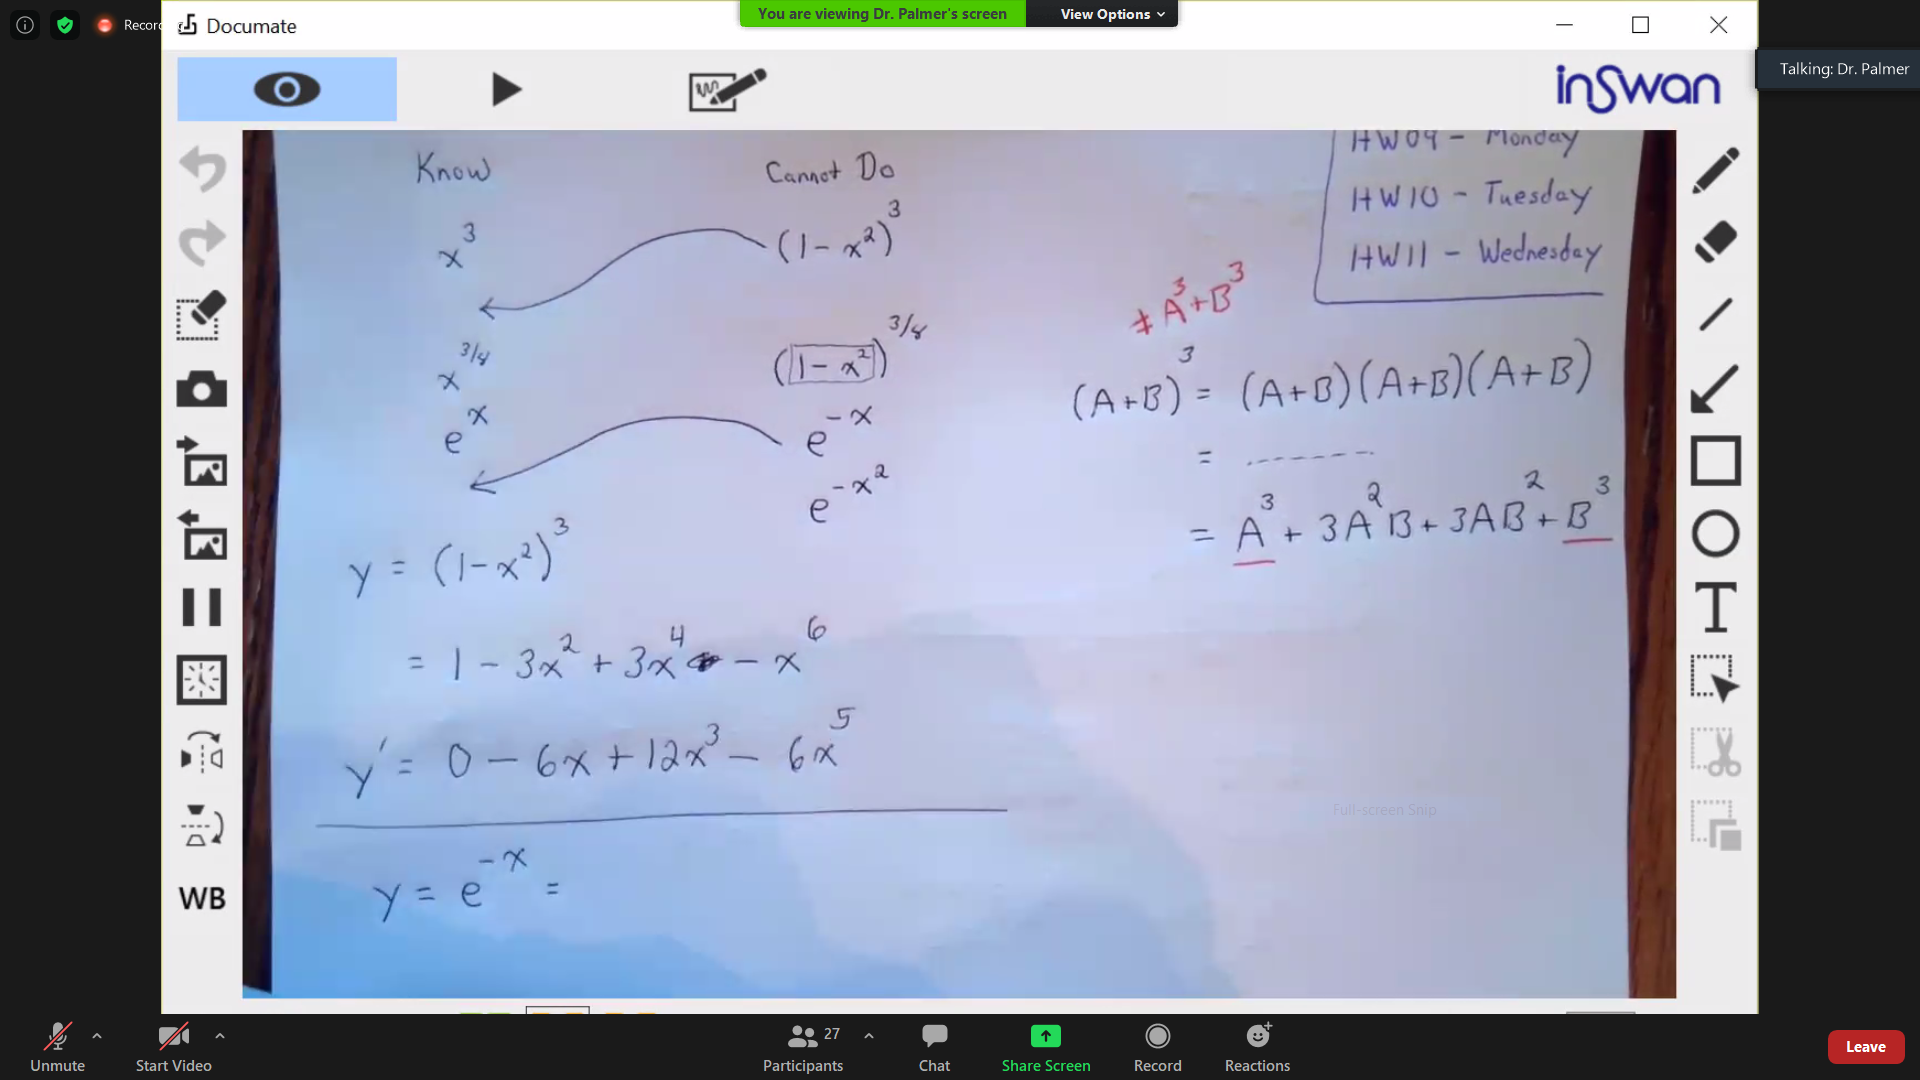 Recording
Documate
You are viewing Dr. Palmer's screen
View Options
Talking: Dr. Palmer
inSwan
Know
Cannot Do
x^3
(1 - x^2)^3
x^{3/8}
(1 - x^2)^{3/8}
e^x
e^{-x}
e^{-x^2}
y = (1 - x^2)^3
= 1 - 3x^2 + 3x^4 - x^6
y' = 0 - 6x + 12x^3 - 6x^5
y = e^{-x} =
HW09 - Monday
HW10 - Tuesday
HW11 - Wednesday
≠ A^3 + B^3
(A+B)^3 = (A+B)(A+B)(A+B)
= -------
= A^3 + 3A^2B + 3AB^2 + B^3
Full-screen Snip
T
WB
Unmute
Start Video
27
Participants
Chat
Share Screen
Record
Reactions
Leave